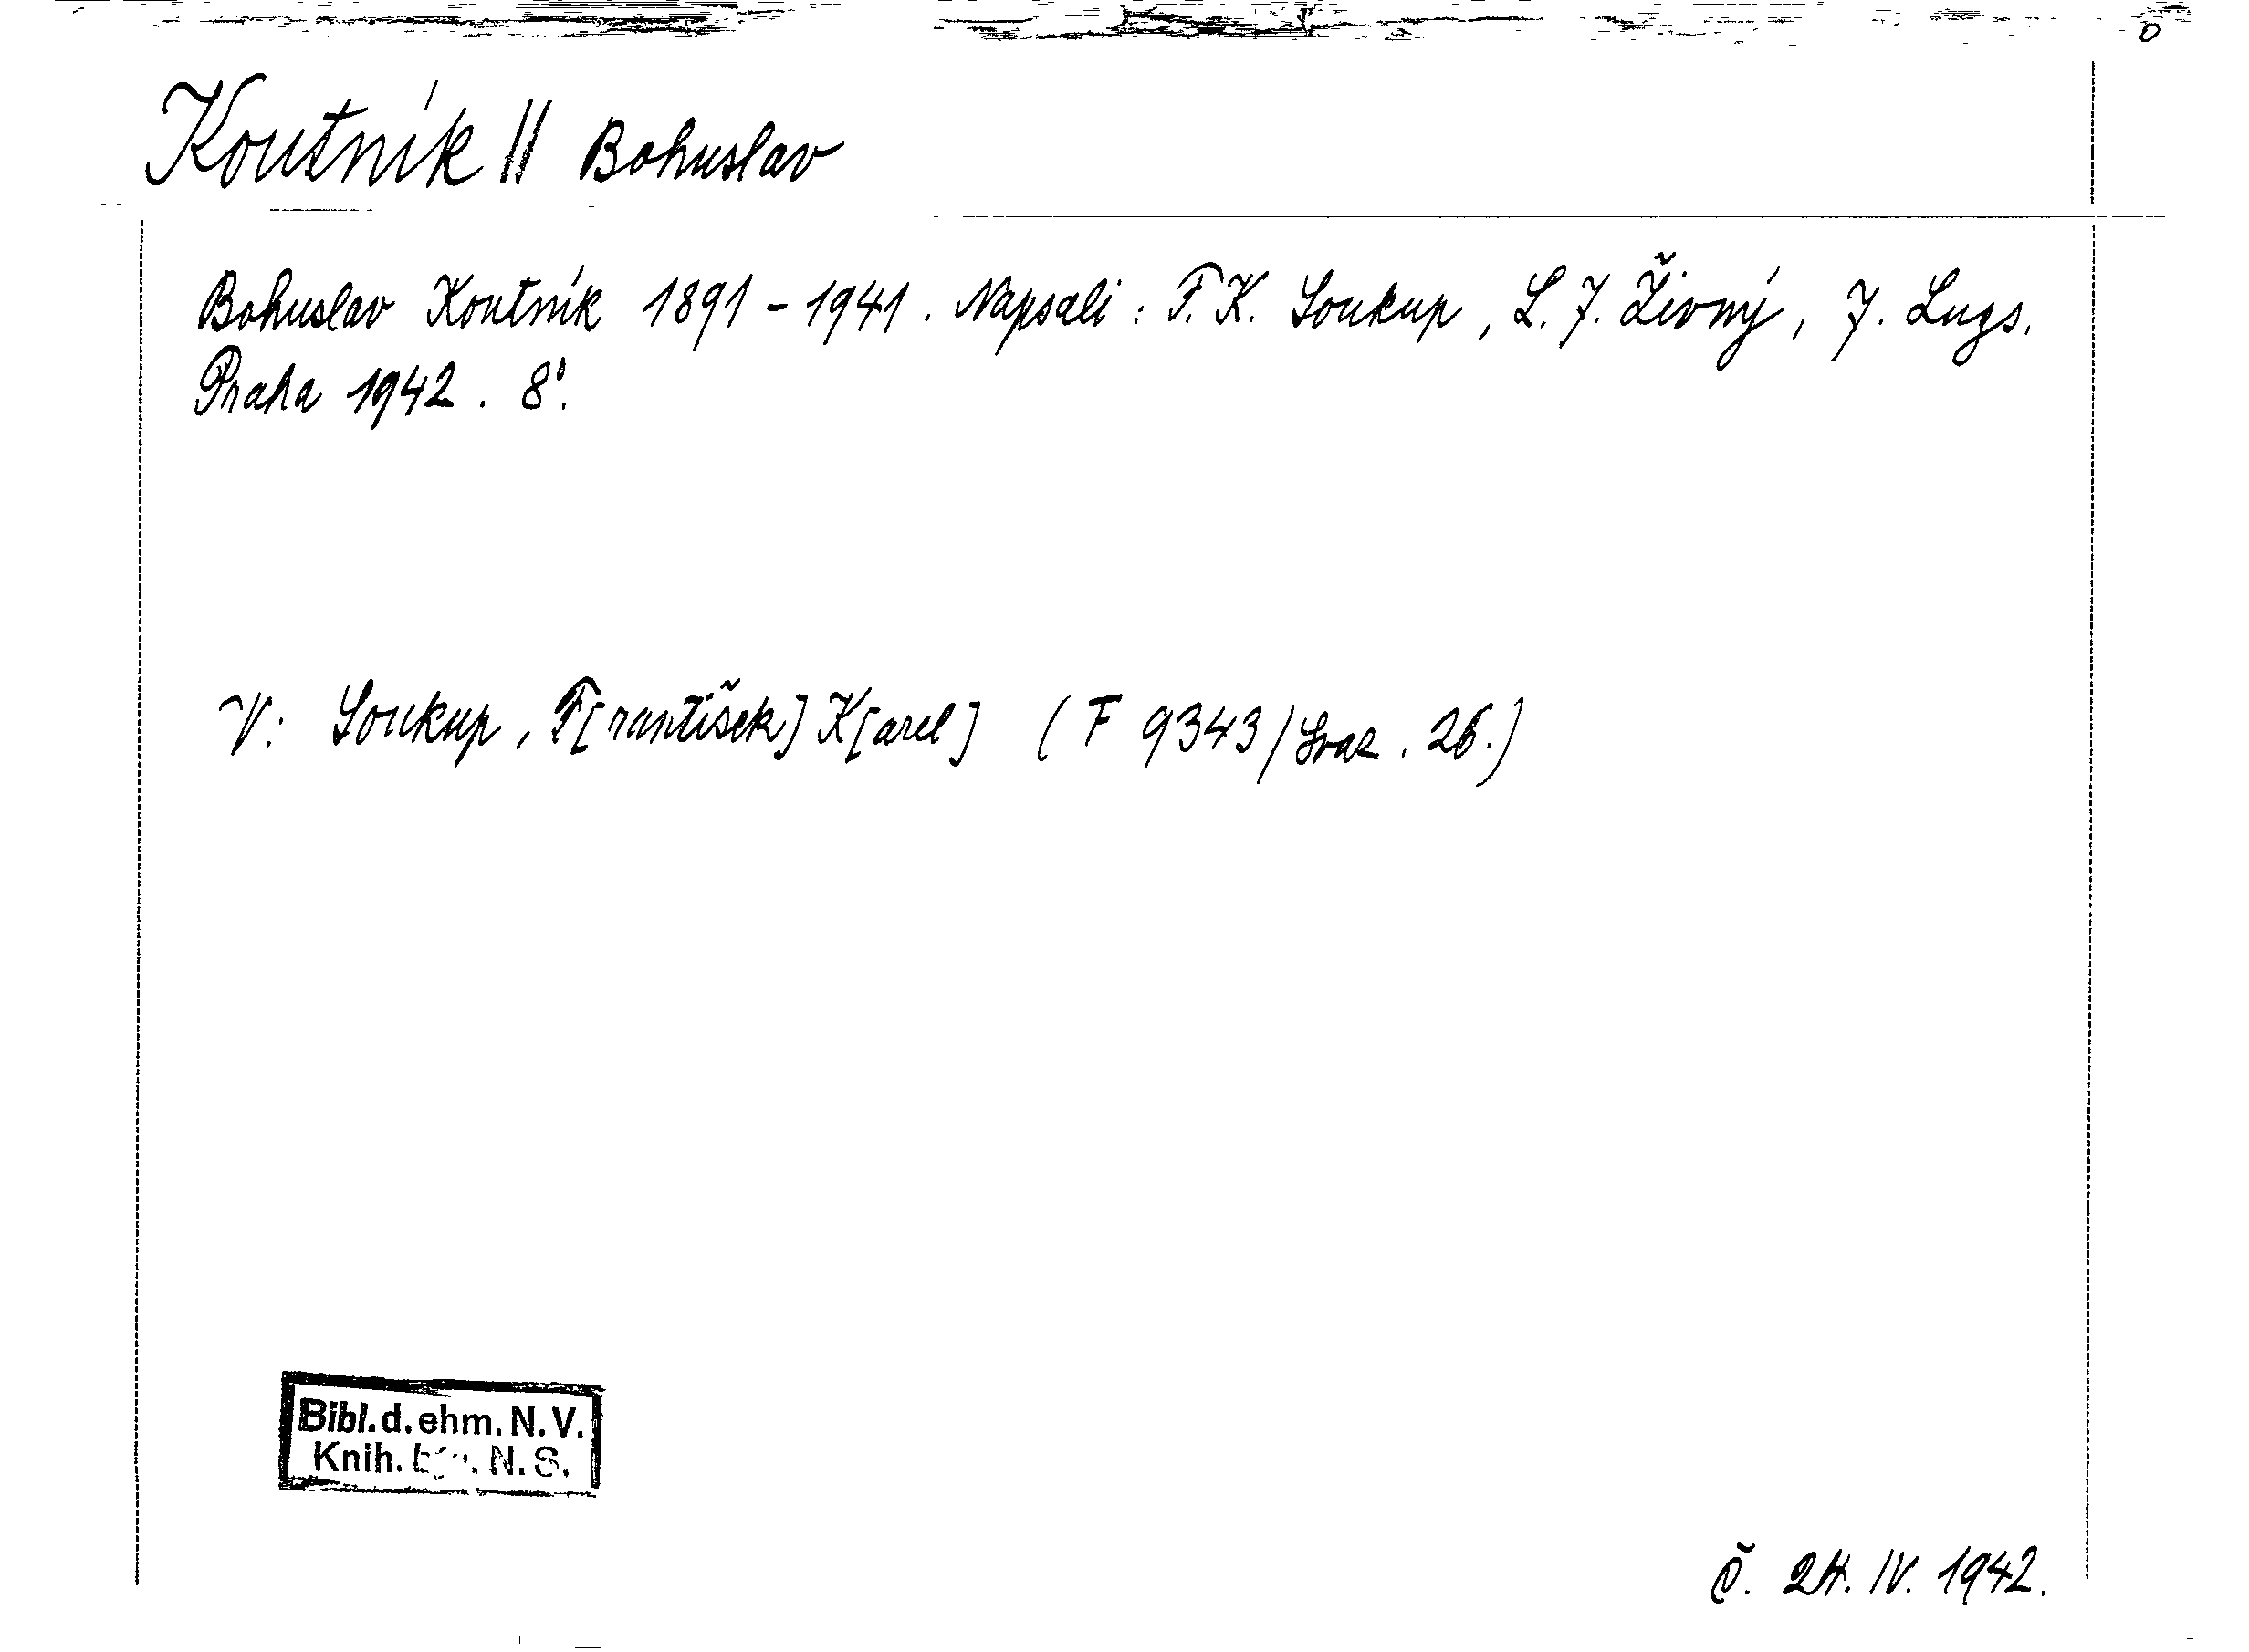 Koutník || Bohuslav
Bohuslav Koutník 1891 - 1941. Napsali: F. K. Soukup, L. J. Živný, J. Lugs.
Praha 1942. 8°.
V: Soukup, F[rantišek] K[arel] (F 9343/Svaz. 26.)
Bibl. d. ehm. N. V.
Knih. N. S.
Č. 24. IV. 1942.